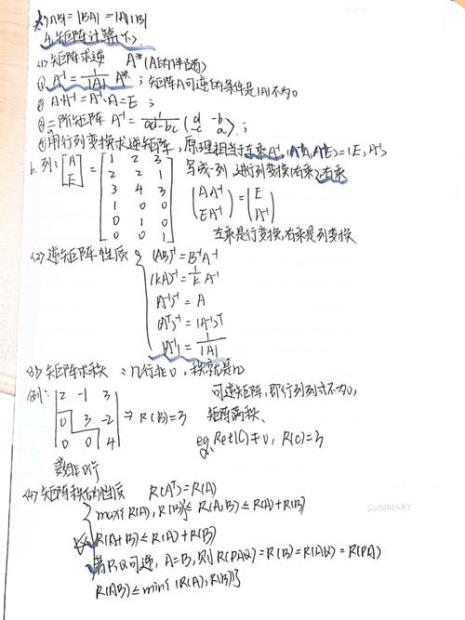 |AB| = |BA| = |A||B|
矩阵计算(下)
(1) 矩阵求逆 A*(A的伴随)
① A⁻¹ = 1/|A| A* ; 矩阵A可逆的条件是|A|不为0
② A·A⁻¹ = A⁻¹·A = E ;
③ 二阶矩阵 A⁻¹ = 1/(ad-bc) (d -b -c a) ;
④ 用行列变换求逆矩阵, 原理相当于左乘A⁻¹, A⁻¹(A,E) = (E, A⁻¹)
b. 列: [A E] = [1 2 3
2 2 1
3 4 3
1 0 0
0 1 0
0 0 1]
写成一列, 进行列变换(右乘) 右乘
(AA⁻¹ EA⁻¹) = (E A⁻¹)
左乘是行变换, 右乘是列变换
(2) 逆矩阵性质 { (AB)⁻¹ = B⁻¹A⁻¹
(kA)⁻¹ = 1/k A⁻¹
(A⁻¹)⁻¹ = A
(Aᵀ)⁻¹ = (A⁻¹)ᵀ
|A⁻¹| = 1/|A|
(3) 矩阵求秩 : n行非0, 秩就是n
例: |2 -1 3
0 3 -2
0 0 4| ⇒ R(B)=3
可逆矩阵, 即行列式不为0,
矩阵满秩.
eg. Det(C) ≠ 0, R(C)=3
数非0行
(4) 矩阵秩的性质 R(Aᵀ)=R(A)
max{R(A), R(B)} ≤ R(A,B) ≤ R(A)+R(B)
R(A+B) ≤ R(A)+R(B)
若P,Q可逆, A=B, 则 R(PAQ)=R(B)=R(AQ)=R(PA)
R(AB) ≤ min{R(A), R(B)}
SUMMARY